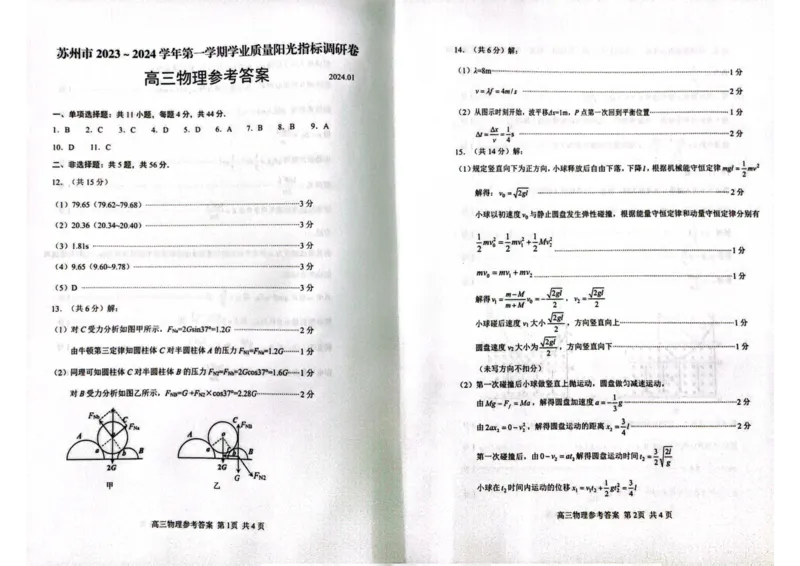 苏州市 2023~2024 学年第一学期学业质量阳光指标调研卷
高三物理参考答案
2024.01
一、单项选择题：共 11 小题，每题 4 分，共 44 分．
1. B 2. C 3. C 4. D 5. D 6. A 7. B 8. B 9. A
10. D 11. C
二、非选择题：共 5 题，共 56 分．
12. （共 15 分）
（1）79.65（79.62~79.68）……3 分
（2）20.36（20.34~20.40）……3 分
（3）1.81s ……3 分
（4）9.65（9.60~9.78）……3 分
（5）D ……3 分
13. （共 6 分）解：
（1）对 C 受力分析如图甲所示，FNa=2Gsin37°=1.2G ……2 分
由牛顿第三定律知圆柱体 C 对半圆柱体 A 的压力 FN1=FNa=1.2G……1 分
（2）同理可知圆柱体 C 对半圆柱体 B 的压力 FN2=FNb=2Gcos37°=1.6G……1 分
对 B 受力分析如图乙所示，FNB=G+FN2×cos37°=2.28G……2 分
FNb C FNa A a b B 2G
甲
C FNB A a b B 2G G FN2
乙
高三物理参考答案 第 1页 共 4 页
14. （共 6 分）解：
（1）λ=8m……1 分
v=λf=4m/s ……2 分
（2）从图示时刻开始，波平移Δx=1m，P 点第一次回到平衡位置……1 分
Δt=Δx/v=1/4 s ……2 分
15. （共 14 分）解：
（1）规定竖直向下为正方向，小球释放后自由下落，下降 l，根据机械能守恒定律 mgl=1/2 mv²
解得：v₀=√(2gl) ……2 分
小球以初速度 v₀ 与静止圆盘发生弹性碰撞，根据能量守恒定律和动量守恒定律分别有
1/2 mv₀²=1/2 mv₁²+1/2 Mv₂² ……1 分
mv₀=mv₁+mv₂ ……1 分
解得 v₁=(m−M)/(m+M) v₀=−√(2gl)/2，v₂=√(2gl)/2
小球碰后速度 v₁ 大小 √(2gl)/2，方向竖直向上……1 分
圆盘速度 v₂ 大小为 √(2gl)/2，方向竖直向下……1 分
（未写方向不扣分）
（2）第一次碰撞后小球做竖直上抛运动，圆盘做匀减速运动，
由 Mg−Ff=Ma，解得圆盘加速度 a=−1/3 g……2 分
由 2ax₂=0−v₂²，解得圆盘运动的距离 x₂=3/4 l……2 分
第一次碰撞后，由 0−v₂=at₂ 解得圆盘运动时间 t₂=3/2 √(2l/g)
小球在 t₂ 时间内运动的位移 x₁=v₁t₂+1/2 gt₂²=3/4 l
高三物理参考答案 第 2页 共 4 页